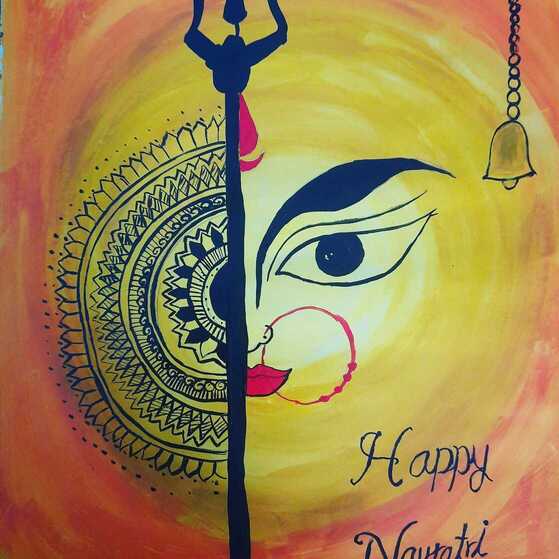 Happy
Navratri